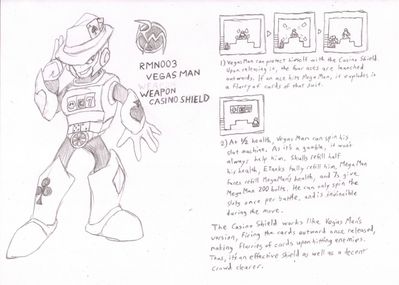 RMN003
VEGAS MAN
WEAPON
CASINO SHIELD
1) Vegas Man can protect himself with the Casino Shield.
Upon releasing it, the four aces are launched
outwards. If an ace hits Mega Man, it explodes in
a flurry of cards of that suit.
2) At ½ health, Vegas Man can spin his
slot machine. As it's a gamble, it won't
always help him. Skulls refill half
his health, E-Tanks fully refill him, Mega Man
faces refill Mega Man's health, and 7s give
Mega Man 200 bolts. He can only spin the
slots once per battle, and is invincible
during the move.
The Casino Shield works like Vegas Man's
version, firing the cards outward once released,
making flurries of cards upon hitting enemies.
Thus, it's an effective shield as well as a decent
crowd clearer.